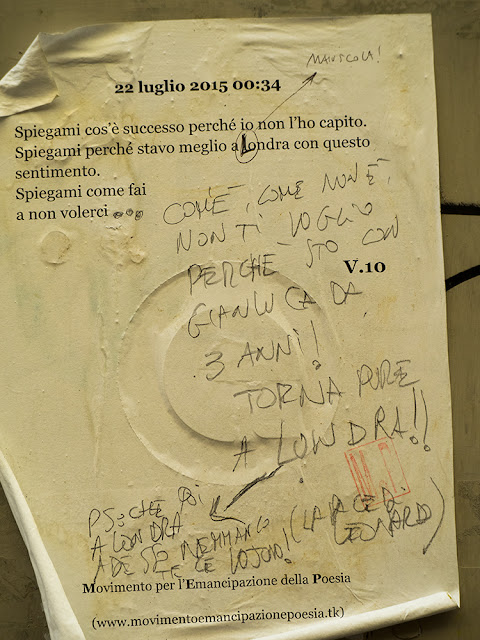 MAIUSCOLA!
22 luglio 2015 00:34
Spiegami cos'è successo perché io non l'ho capito.
Spiegami perché stavo meglio a Londra con questo
sentimento.
Spiegami come fai
a non volerci...
COM'È, COME NON È,
NON TI VOGLIO
PERCHÉ STO CON
V.10
GIANLUCA DA
3 ANNI!
TORNA PURE
A LONDRA!!
PS: CHE POI
A LONDRA
MEMMANCO (LAPICER.
TE CE VOJONO! LEONARD)
Movimento per l'Emancipazione della Poesia
(www.movimentoemancipazionepoesia.tk)